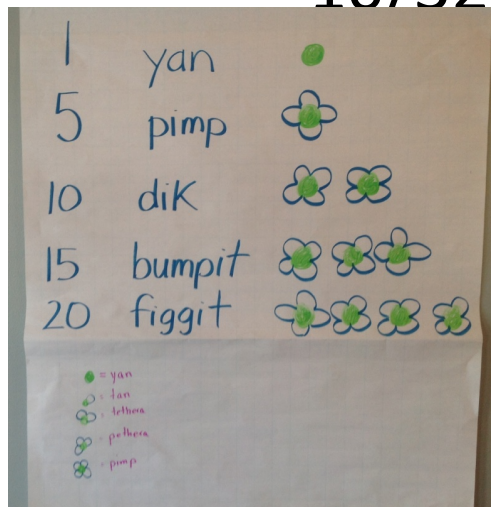 1 yan
5 pimp
10 dik
15 bumpit
20 figgit
= yan
= tan
= tethera
= pethera
= pimp